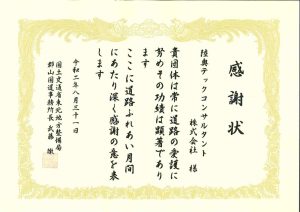 感謝状
陸奥テックコンサルタント
株式会社 様
貴団体は常に道路の愛護に
努めその功績は顕著であり
ます
ここに道路ふれあい月間
にあたり深く感謝の意を表
します
令和二年八月三十一日
国土交通省東北地方整備局
郡山国道事務所長 武藤 徹